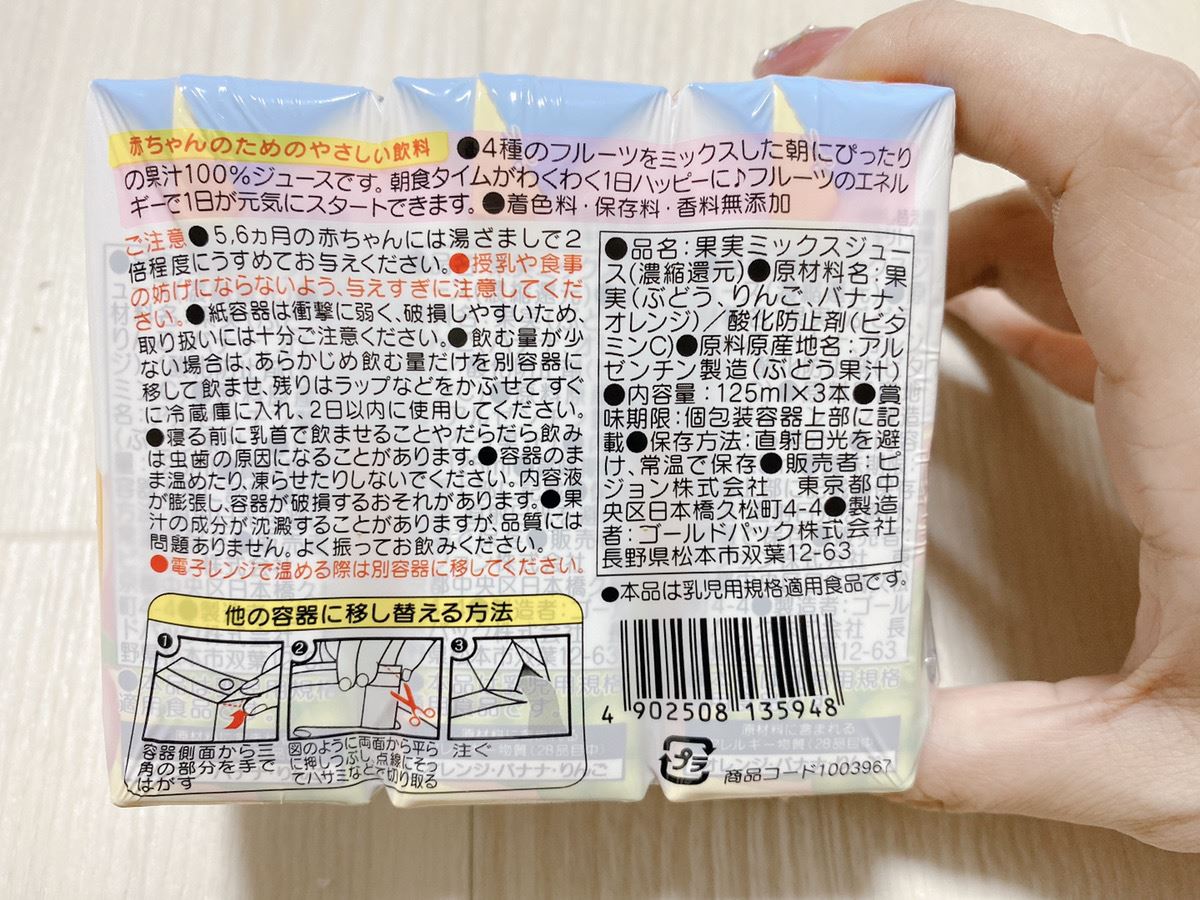 赤ちゃんのためのやさしい飲料 ●4種のフルーツをミックスした朝にぴったり
の果汁100%ジュースです。朝食タイムがわくわく1日ハッピーに♪フルーツのエネル
ギーで1日が元気にスタートできます。●着色料・保存料・香料無添加
ご注意●5,6ヵ月の赤ちゃんには湯ざましで2
倍程度にうすめてお与えください。●授乳や食事
の妨げにならないよう、与えすぎに注意してくだ
さい。●紙容器は衝撃に弱く、破損しやすいため、
取り扱いには十分ご注意ください。●飲む量が少
ない場合は、あらかじめ飲む量だけを別容器に
移して飲ませ、残りはラップなどをかぶせてすぐ
に冷蔵庫に入れ、2日以内に使用してください。
●寝る前に乳首で飲ませることやだらだら飲み
は虫歯の原因になることがあります。●容器のま
ま温めたり、凍らせたりしないでください。内容液
が膨張し、容器が破損するおそれがあります。●果
汁の成分が沈澱することがありますが、品質には
問題ありません。よく振ってお飲みください。
●電子レンジで温める際は別容器に移してください。
●品名:果実ミックスジュー
ス(濃縮還元)●原材料名:果
実(ぶどう、りんご、バナナ、
オレンジ)/酸化防止剤(ビタ
ミンC)●原料原産地名:アル
ゼンチン製造(ぶどう果汁)
●内容量:125ml×3本●賞
味期限:個包装容器上部に記
載●保存方法:直射日光を避
け、常温で保存●販売者:ピ
ジョン株式会社 東京都中
央区日本橋久松町4-4●製造
者:ゴールドパック株式会社
長野県松本市双葉12-63
●本品は乳児用規格適用食品です。
他の容器に移し替える方法
1
容器側面から三
角の部分を手で
はがす
2
図のように両面から平ら
に押しつぶし、点線にそっ
てハサミなどで切り取る
3
注ぐ
4 902508 135948
プラ
商品コード1003967